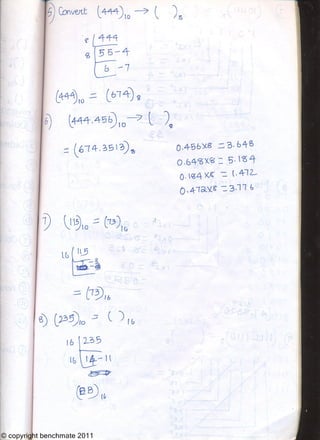 5) Convert (444)₁₀ → ( )₈
8 | 444
8 | 55-4
6 -7
(444)₁₀ = (674)₈
6) (444.456)₁₀ → ( )₈
= (674.3513)₈
0.456x8 = 3.648
0.648x8 = 5.184
0.184x8 = 1.472
0.472x8 = 3.776
7) (115)₁₀ = (73)₁₆
16 | 115
= (73)₁₆
8) (235)₁₀ = ( )₁₆
16 | 235
16 | 14-11
(EB)₁₆
© copyright benchmate 2011